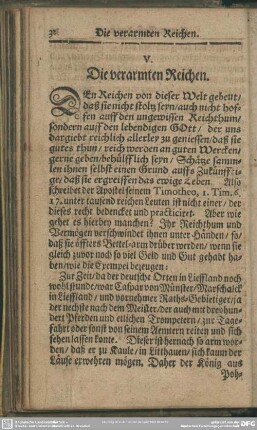 38 Die verarmten Reichen.
V.
Die verarmten Reichen.
DEn Reichen von dieser Welt gebeut/
daß sie nicht stolz seyn/auch nicht hof-
fen auff den ungewissen Reichthum/
sondern auff den lebendigen GOtt/ der uns
dargiebt reichlich allerley zu geniessen/daß sie
gutes thun/ reich werden an guten Wercken/
gerne geben/behülfflich seyn/ Schätze samm-
len ihnen selbst einen Grund auffs Zukünff-
tige/ daß sie ergreiffen das ewige Leben. Also
schreibet der Apostel seinem Timotheo, 1. Tim. 6.
17. unter tausend reichen Leuten ist nicht einer/ der
dieses recht bedencket und practiciret. Aber wie
gehet es hierbey manchen? Ihr Reichthum und
Vermögen verschwindet ihnen unter Händen/ so/
daß sie öffters Bettel-arm drüber werden/ wenn sie
gleich zuvor noch so viel Geld und Gut gehabt ha-
ben/wie die Exempel bezeugen:
Zur Zeit/da der deutsche Orten in Lieffland noch
wohl stunde/war Caspar von Münster/Marschalck
in Lieffland/ und vornehmer Raths-Gebietiger/ja
der nechste nach dem Meister/der auch mit drey hun-
dert Pferden und etlichen Trompetern/ zur Tage-
fahrt oder sonst von seinem Aemtern reiten und sich
sehen lassen konte. Dieser ist hernach so arm wor-
den/ daß er zu Kaule/ in Litthauen/ sich kaum der
Läuse erwehren mögen. Daher der König aus
Poh-
DFG